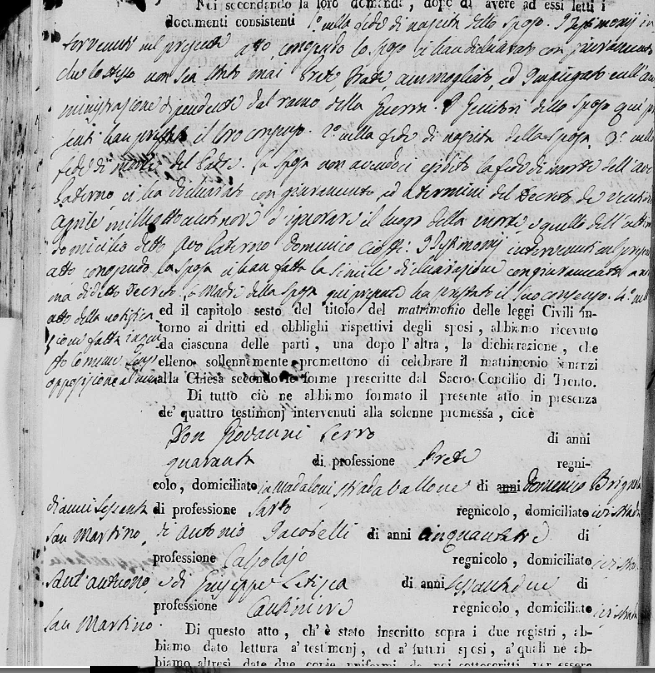 Noi secondando la loro domanda, dopo di avere ad essi letti i
documenti consistenti 1.° nella fede di nascita dello sposo. I Testimonj in
tervenuti nel presente atto, conoscendo lo sposo ci han dichiarato con giuramento
che lo stesso non sia stato mai Prete, Frate ammogliato, ed Impiegato nell'am
ministrazione dipendente dal ramo della Guerra. I Genitori dello sposo qui pre
senti han prestato il loro consenso. 2.° nella fede di nascita della sposa. 3.° nella
fede di morte del Padre. La sposa non avendoci esibito la fede di morte dell'avo
paterno ci ha dichiarato con giuramento ed a termini del Decreto de' ventinove
Aprile mille otto cento nove d'ignorare il luogo della morte e quello dell'ultimo
domicilio detto avo Paterno Domenico I Testimonj intervenuti nel presente
atto conoscendo la sposa ci han fatta la simile dichiarazione con giuramento a nor
ma di detto Decreto. La Madre della sposa qui presente ha prestato il suo consenso. 4.° nell'
atto della notifica
zione fatta in que
sto Comune senza
opposizione alcuna
ed il capitolo sesto del titolo del matrimonio delle leggi Civili in-
torno ai dritti ed obblighi rispettivi degli sposi, abbiamo ricevuto
da ciascuna delle parti, una dopo l'altra, la dichiarazione, che
elleno sollennemente promettono di celebrare il matrimonio innanzi
alla Chiesa secondo le forme prescritte dal Sacro Concilio di Trento.
Di tutto ciò ne abbiamo formato il presente atto in presenza
de' quattro testimonj intervenuti alla solenne promessa, cioè
Don Giovanni Serro di anni
quaranta di professione Prete regni-
colo, domiciliato in Madaloni, strada ballone di anni Domenico
di anni sessanta di professione Sarto regnicolo, domiciliato ivi strada
San Martino, di Antonio Iacobelli di anni cinquantatre di
professione Calzolajo regnicolo, domiciliato ivi stra.
Sant'antuono, e di Giuseppe di anni sessantadue di
professione Cantiniere regnicolo, domiciliato ivi strada
San Martino.
Di questo atto, ch'è stato inscritto sopra i due registri, ab-
biamo dato lettura a' testimonj, ed a' futuri sposi, a' quali ne ab-
biamo altresì date due copie uniformi da noi sottoscritti per essere